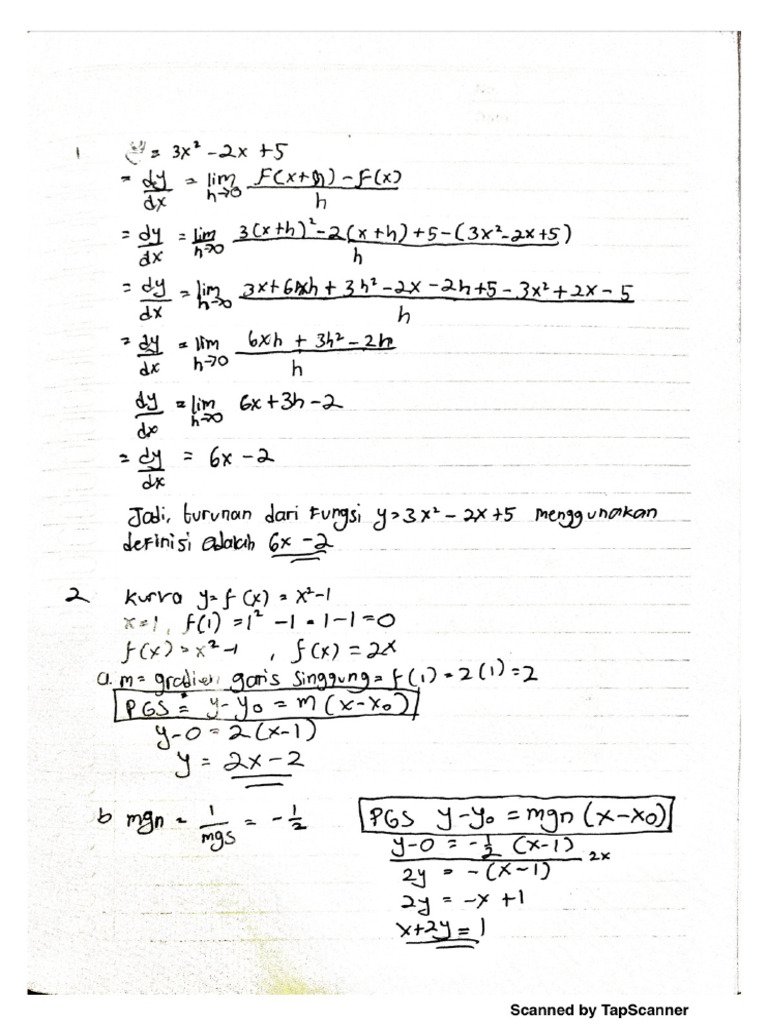 1 y = 3x² - 2x + 5
= dy/dx = lim h→0 F(x+h) - f(x) / h
= dy/dx = lim h→0 3(x+h)² - 2(x+h) + 5 - (3x² - 2x + 5) / h
= dy/dx = lim h→0 3x + 6xh + 3h² - 2x - 2h + 5 - 3x² + 2x - 5 / h
= dy/dx = lim h→0 6xh + 3h² - 2h / h
dy/dx = lim h→0 6x + 3h - 2
= dy/dx = 6x - 2
Jadi, turunan dari Fungsi y = 3x² - 2x + 5 menggunakan
definisi adalah 6x - 2
2 Kurva y = f(x) = x² - 1
x = 1, f(1) = 1² - 1 = 1 - 1 = 0
f(x) = x² - 1, f(x) = 2x
a. m = gradien garis singgung = f(1) = 2(1) = 2
PGS = y - y₀ = m(x - x₀)
y - 0 = 2(x - 1)
y = 2x - 2
b mgn = 1/mgs = -1/2
PGS y - y₀ = mgn (x - x₀)
y - 0 = -1/2 (x - 1) 2x
2y = -(x - 1)
2y = -x + 1
x + 2y = 1
Scanned by TapScanner